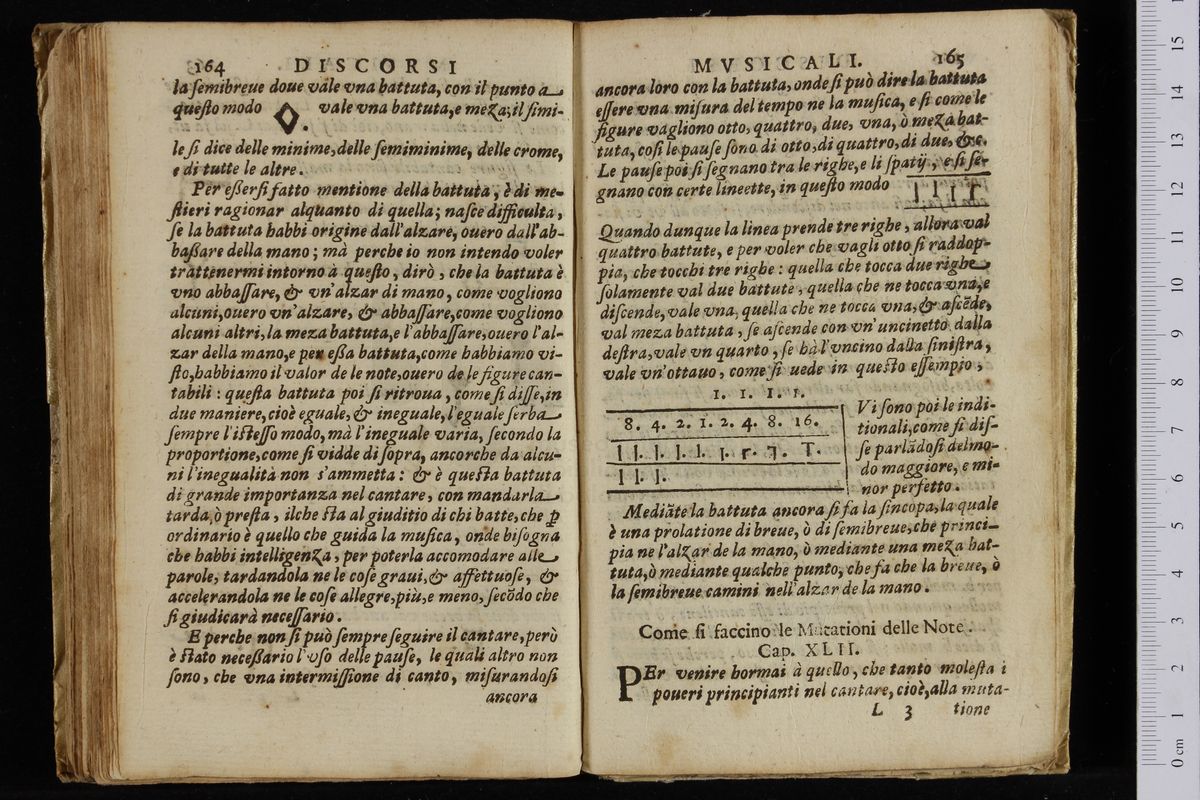 164 DISCORSI
la semibreue doue vale vna battuta, con il punto a
questo modo vale vna battuta, e meza; il simi-
le si dice delle minime, delle semiminime, delle crome,
e di tutte le altre.
Per eßersi fatto mentione della battuta, è di me-
stieri ragionar alquanto di quella; nasce difficulta,
se la battuta habbi origine dall'alzare, ouero dall'ab-
baßare della mano; mà perche io non intendo voler
trattenermi intorno à questo, dirò, che la battuta è
vno abbassare, & vn'alzar di mano, come vogliono
alcuni, ouero vn'alzare, & abbassare, come vogliono
alcuni altri, la meza battuta, e l'abbassare, ouero l'al-
zar della mano, e per eßa battuta, come habbiamo vi-
sto, habbiamo il valor de le note, ouero de le figure can-
tabili: questa battuta poi si ritroua, come si disse, in
due maniere, cioè eguale, & ineguale, l'eguale serba
sempre l'istesso modo, mà l'ineguale varia, secondo la
proportione, come si vidde di sopra, ancorche da alcu-
ni l'inegualità non s'ammetta: & è questa battuta
di grande importanza nel cantare, con mandarla
tarda, ò presta, ilche sta al giuditio di chi batte, che ꝑ
ordinario è quello che guida la musica, onde bisogna
che habbi intelligenza, per poterla accomodare alle
parole, tardandola ne le cose graui, & affettuose, &
accelerandola ne le cose allegre, più, e meno, secōdo che
si giudicarà necessario.
E perche non si può sempre seguire il cantare, però
è stato neceßario l'vso delle pause, le quali altro non
sono, che vna intermissione di canto, misurandosi
ancora
MVSICALI. 165
ancora loro con la battuta, onde si può dire la battuta
essere vna misura del tempo ne la musica, e si come le
figure vagliono otto, quattro, due, vna, ò meza bat-
tuta, cosi le pause sono di otto, di quattro, di due, &c.
Le pause poi si segnano tra le righe, e li spatij, e si se-
gnano con certe lineette, in questo modo
Quando dunque la linea prende tre righe, allora val
quattro battute, e per voler che vagli otto si raddop-
pia, che tocchi tre righe: quella che tocca due righe
solamente val due battute, quella che ne tocca vna, e
discende, vale vna, quella che ne tocca vna, & ascēde,
val meza battuta, se ascende con vn'uncinetto dalla
destra, vale vn quarto, se hà l'vncino dalla sinistra,
vale vn'ottauo, come si uede in questo essempio,
1. 1. 1. 1.
8. 4. 2. 1. 2. 4. 8. 16.
Vi sono poi le indi-
tionali, come si dis-
se parlādosi del mo-
do maggiore, e mi-
nor perfetto.
Mediāte la battuta ancora si fa la sincopa, la quale
è una prolatione di breue, ò di semibreue, che princi-
pia ne l'alzar de la mano, ò mediante una meza bat-
tuta, ò mediante qualche punto, che fa che la breue, ò
la semibreue camini nell'alzar de la mano.
Come si faccino le Mutationi delle Note.
Cap. XLII.
PEr venire hormai à quello, che tanto molesta i
poueri principianti nel cantare, cioè, alla muta-
L 3 tione